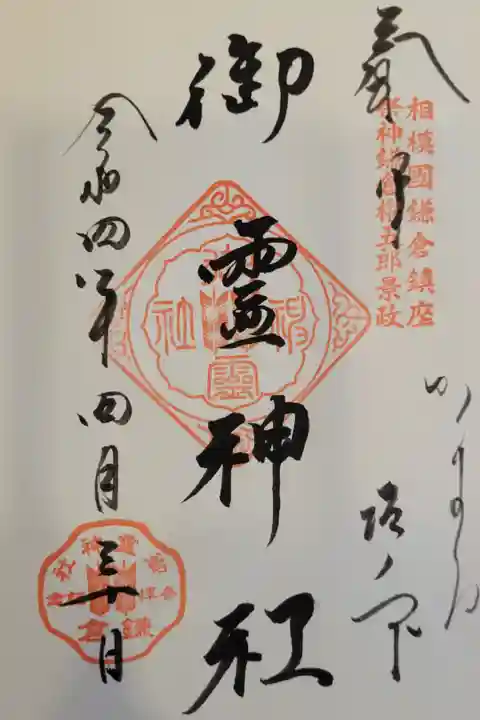 相模國鎌倉鎮座
祭神鎌倉権五郎景政
かまくら
坂ノ下
御霊神社
令和四年四月三十日